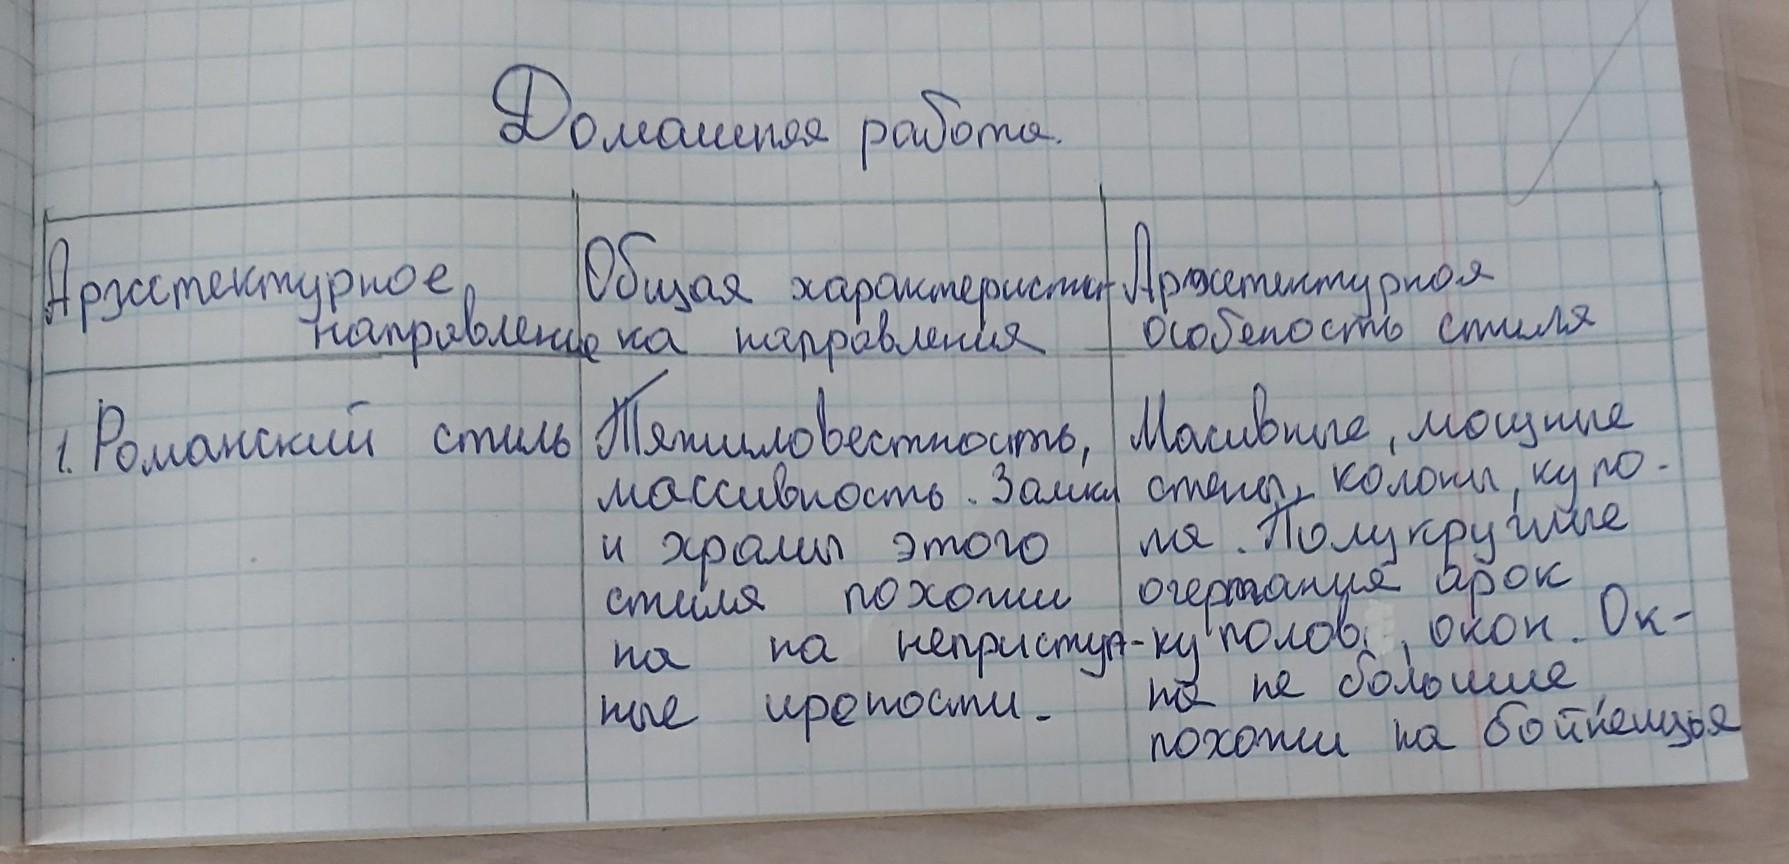 Домашняя работа.
Архетектурное
направление
Общая характеристи-
ка направления
Архетектурная
особеность стиля
1. Романский стиль
Тяжиловестность,
массивность. Замки
и храмы этого
стиля похожи
на на неприступ-
ные крепости.
Масивные, мощные
стены, колоны, купо-
ла. Полукруглые
очертания арок
куполов, окон. Ок-
на не большие
похожи на бойнецья